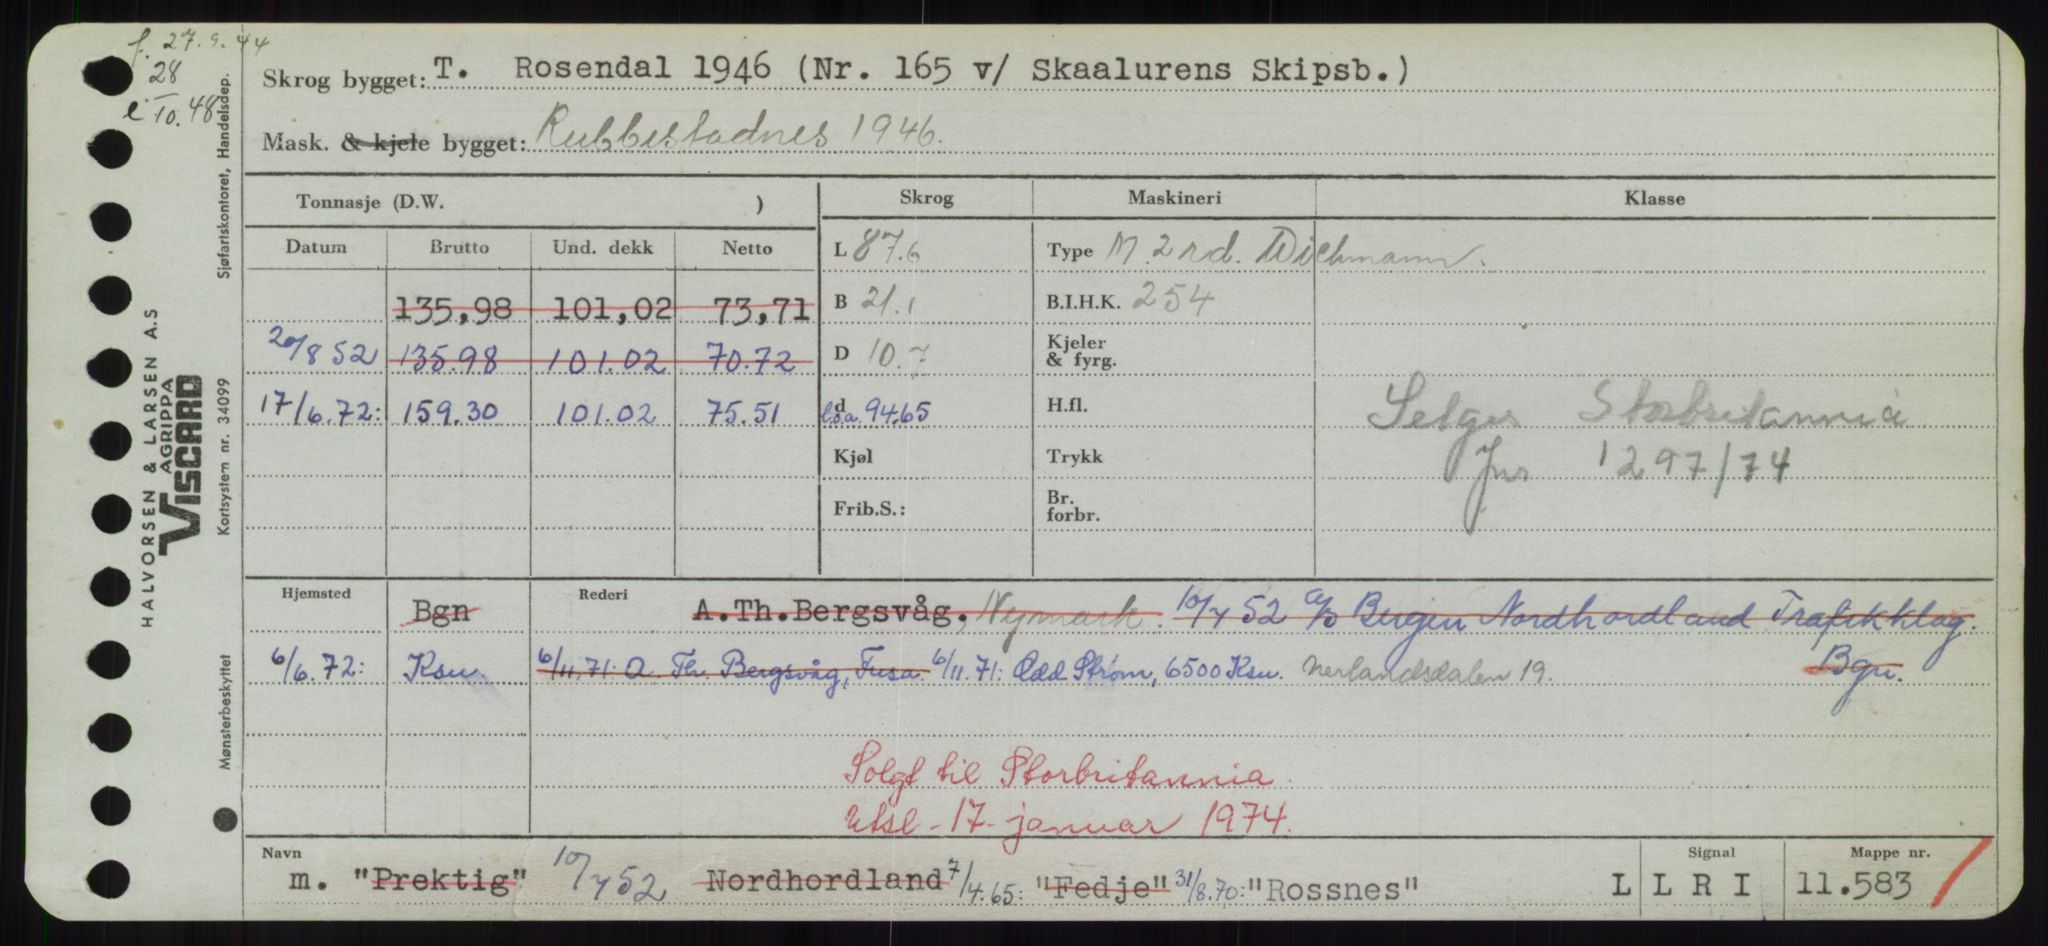 f. 27.9.44
28
e 10.48
Skrog bygget: T. Rosendal 1946 (Nr. 165 v/ Skaalurens Skipsb.)
Mask. & kjele bygget: Rubbestadnes 1946.
Tonnasje (D.W. ) Skrog Maskineri Klasse
Datum Brutto Und. dekk Netto L 87.6 Type M. 2 rd. Wichmann.
135,98 101,02 73,71 B 21.1 B.I.H.K. 254
20/8 52 135.98 101.02 70.72 D 10.7 Kjeler & fyrg.
17/6.72: 159.30 101.02 75.51 d l.o.a. 94.65 H.fl.
Selges Storbritannia
Kjøl Trykk
Jnr 1297/74
Frib.S.: Br. forbr.
Hjemsted Bgn Rederi A.Th.Bergsvåg, Nymark. 10/7 52 A/S Bergen Nordhordland Trafikklag. Bgn.
6/6.72: Ksu. 6/11.71: A. Th. Bergsvåg, Fusa. 6/11.71: Odd Strøm, 6500 Ksu. Nerlandsdalen 19.
Solgt til Storbritannia.
Utsl. 17. januar 1974.
Navn Signal Mappe nr.
m. "Prektig" 10/7 52 Nordhordland 7/4.65: "Fedje" 31/8.70: "Rossnes" L L R I 11.583
HALVORSEN & LARSEN A.S
AGRIPPA
VISCARD
Sjøfartskontoret, Handelsdep.
Kortsystem nr. 34099
Mønsterbeskyttet